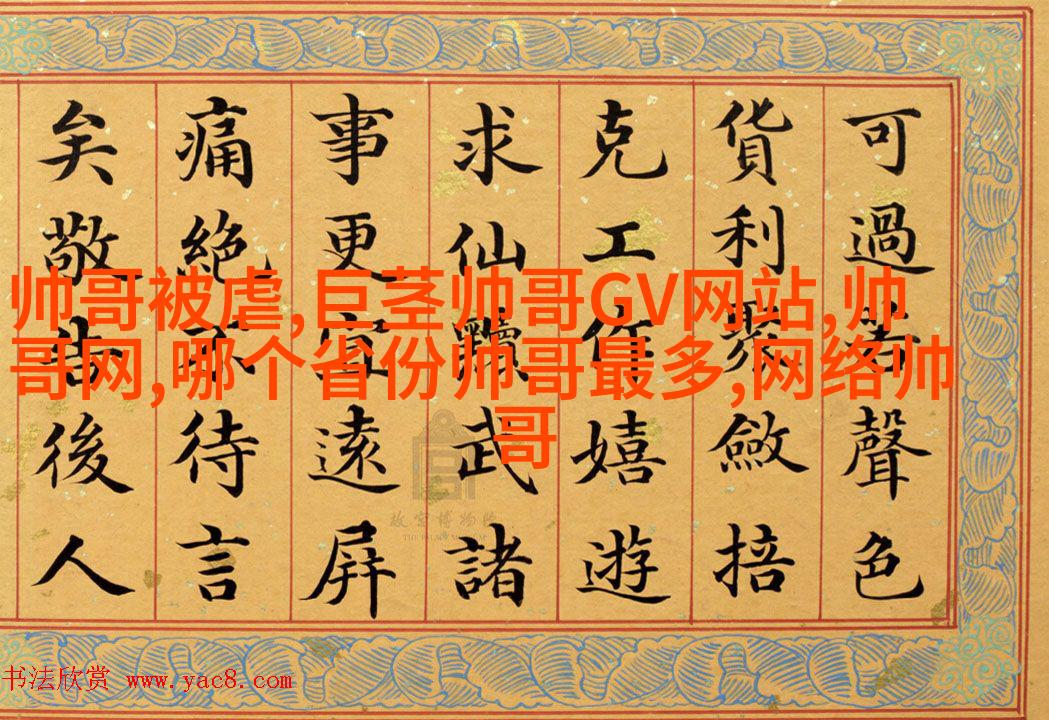 可過若聲色
貨利聚斂掊
克工作嬉遊
求仙黷武諸
事更宜遠屏
痛絕不待言
矣敬告後人
帅哥被虐,巨茎帅哥GV网站,帅
哥网,哪个省份帅哥最多,网络帅
哥
故宫博物院
THE PALACE MUSEUM
书法欣赏 www.yac8.com